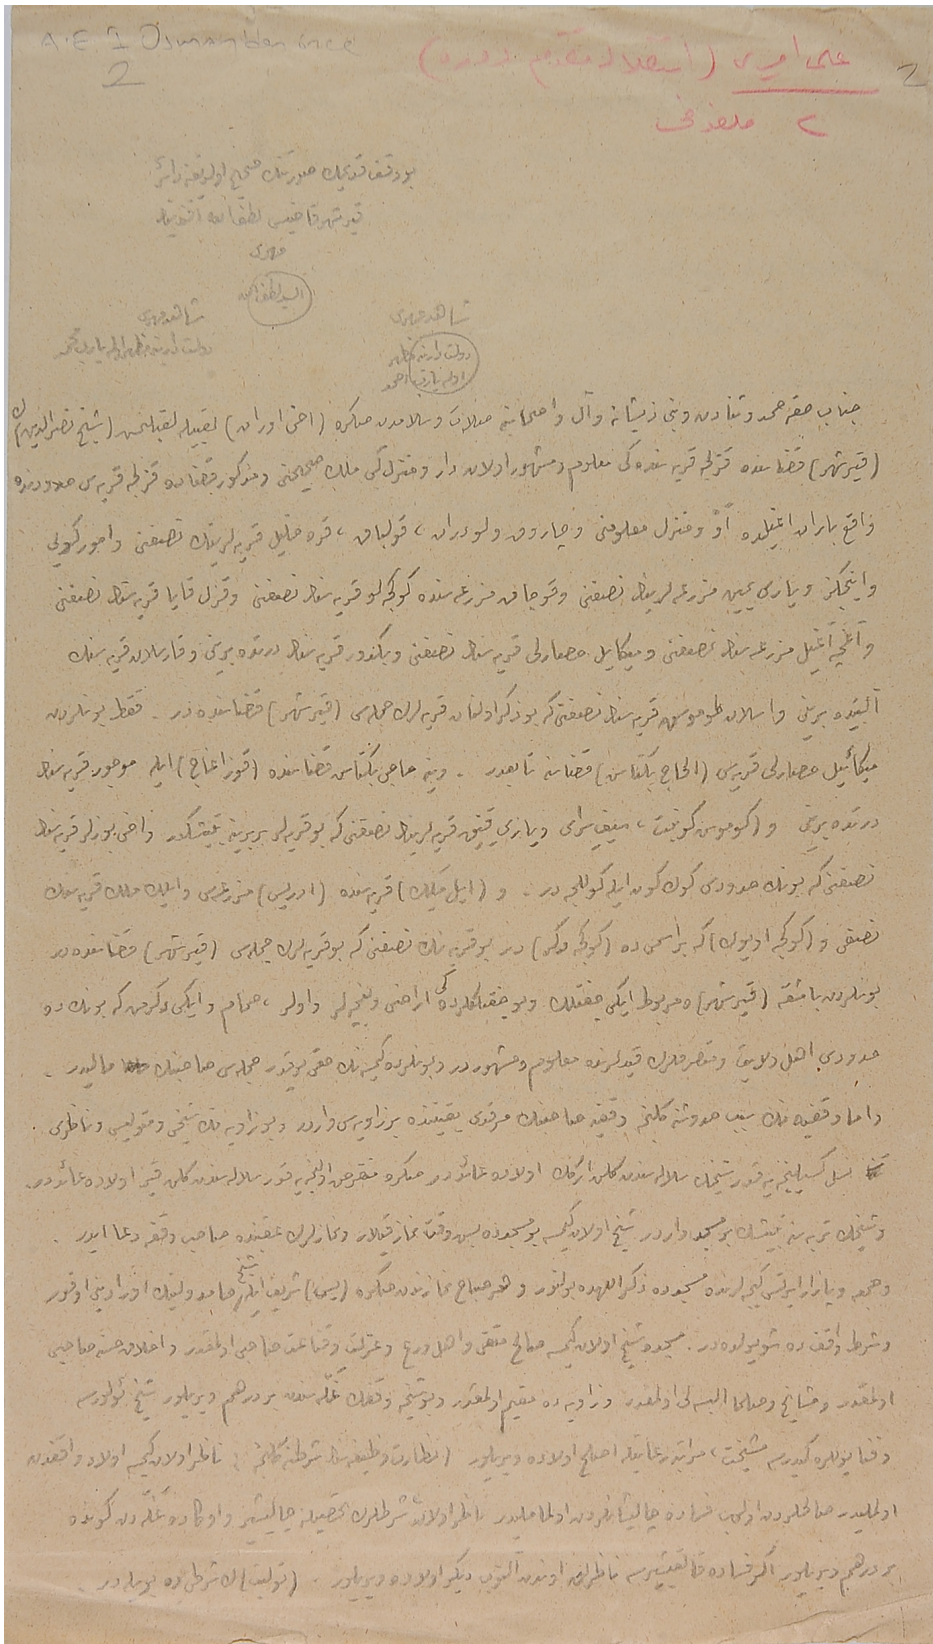 A.E. I Osmandan önce
2
2
علی امیری (استقلالدن مقدم)
۲ ملفوفی
بو وقف قدیمك صورتنك صحیح اولدیغنه دائر
قیرشهر قاضیسی لطف الله افندینك
مهری
السید لطف الله
شاهد مهری
شاهد مهری
دولت دارینه مظهر اوله یارب احمد
دولت دارینه مظهر اوله یارب محمد
جناب حقه حمد و ثنادن و نبی ذیشانه و آل و اصحابنه صلات و سلامدن صكره (اخی اوران) لقبیله لقبلنمش (شیخ نصر الدین)ك
(قیرشهر) قضاسنده قزلجه قریه سنده كی معلوم و مشهور اولان دار و منزل كبی ملك صحیحنی و مذكور قضاده قزلجه قریه سی حدودنده
واقع یاران اغیلنده او و منزل معلومنی و چاروق و لودران ، قولپاق ، قره خلیل قریه لرینك نصفنی و
و اینجكلر و یاری یمین مزرعه لرینك نصفنی و قوجاق مزرعه سنده كوكجه لو قریه سنك نصفنی و قزل قایا قریه سنك نصفنی
و آغچه آغیل مزرعه سنك نصفنی و میكایل حصارلی قریه سنك نصفنی و بكندور قریه سنك درتده برینی و قارسلان قریه سنك
آلتیده برینی و ارسلان طوغمش قریه سنك نصفنی كه بو ذكر اولنان قریه لرك جمله سی (قیرشهر) قضاسنده در . فقط بونلردن
میكائیل حصارلی قریه سی (الحاج بكتاش) قضاسنه تابعدر . وینه حاجی بكتاش قضاسنده (قوز اغاج) ایله موجور قریه سنك
درتده برینی و (كوموش كونبت ، سیفی سرای و یاری قینیق قریه لرینك نصفنی كه بو قریه لر بربرینه بیتیشكدر و اخی بوزلر قریه سنك
نصفنی كه بونك حدودی كوك كون ایله كوللجه در . و (ایل بیكلك) قریه سنده (ادریس) مزرعه سی و ایلك ملك قریه سنك
نصفی و (كوكجه اویوك) كه بر اسمی ده (كوكجه دكن) در بو قریه نك نصفنی كه بو قریه لرك جمله سی (قیرشهر) قضاسنده در
بونلردن باشقه (قیرشهر)ه مربوط ایكی چفتلك و بو چفتلكلرده كی اراضی و بغچه لر و اولر ، حمام و ایكی دكرمن كه بونك ده
حدودی اهل ولایت و متصرفلرك قیدلرنده معلوم و مشهوردر و بونلرده كیمسه نك حقی یوقدر جمله سی صاحبنك مالیدر .
و اما وقفیه نك سبب حدوثنه كلنجه وقفیه صاحبنك مرقدی یقیننده بر زاویه سی واردر و بو زاویه نك شیخی و متولیسی و ناظری
نسل كسیلینجه یه قدر شیخك سلاله سندن كلن اركك اولاده عائددر صكره منقرض اولنجه یه قدر سلاله سندن كلن قیز اولاده عائددر.
و شیخك تربه سنه بیتیشك بر مسجد واردر شیخ اولان كیمسه بو مسجدده بش وقت نماز قیلار و نمازلرك عقبنده صاحب وقفه دعا ایدر .
و جمعه و پازار ایرتسی كیجه لرنده مسجدده ذكر الله ده بولنور و هر صباح نمازندن صكره (یس) شریف ایله شیخ حامد ولینك اورادینی اوقور
و شرط واقف ده شویله در . مسجدده شیخ اولان كیمسه صالح متقی و اهل ورع و عزلت و قناعت صاحبی اولمقدر و اخلاق حسنه صاحبی
اولمقدر و مشایخ و صلحا البسه لی اولمقدر و زاویه ده مقیم اولمقدر و بو شیخه وقفك غله سندن بر درهم ویریلور شیخ ئولورسه
و فنا یوللره كیدرسه مشیخت ، مراتبه رعایتله اصلح اولاده ویریلور (نظارت) وظیفه سنك شرطنه كلنجه : ناظر اولان كیمسه اولاد واقفدن
اولملیدر صالحلردن اولوب فساده چالیشانلردن اولماملیدر ناظر اولان شرطلرك تحصیلنه چالیشیر و اوكا ده غله دن كونده
بر درهم ویریلور اكر فساده قالقیشیرسه ناظرلق اوندن آلنوب دیكر اولاده ویریلور . (تولیت)ك شرطی ده بویله در